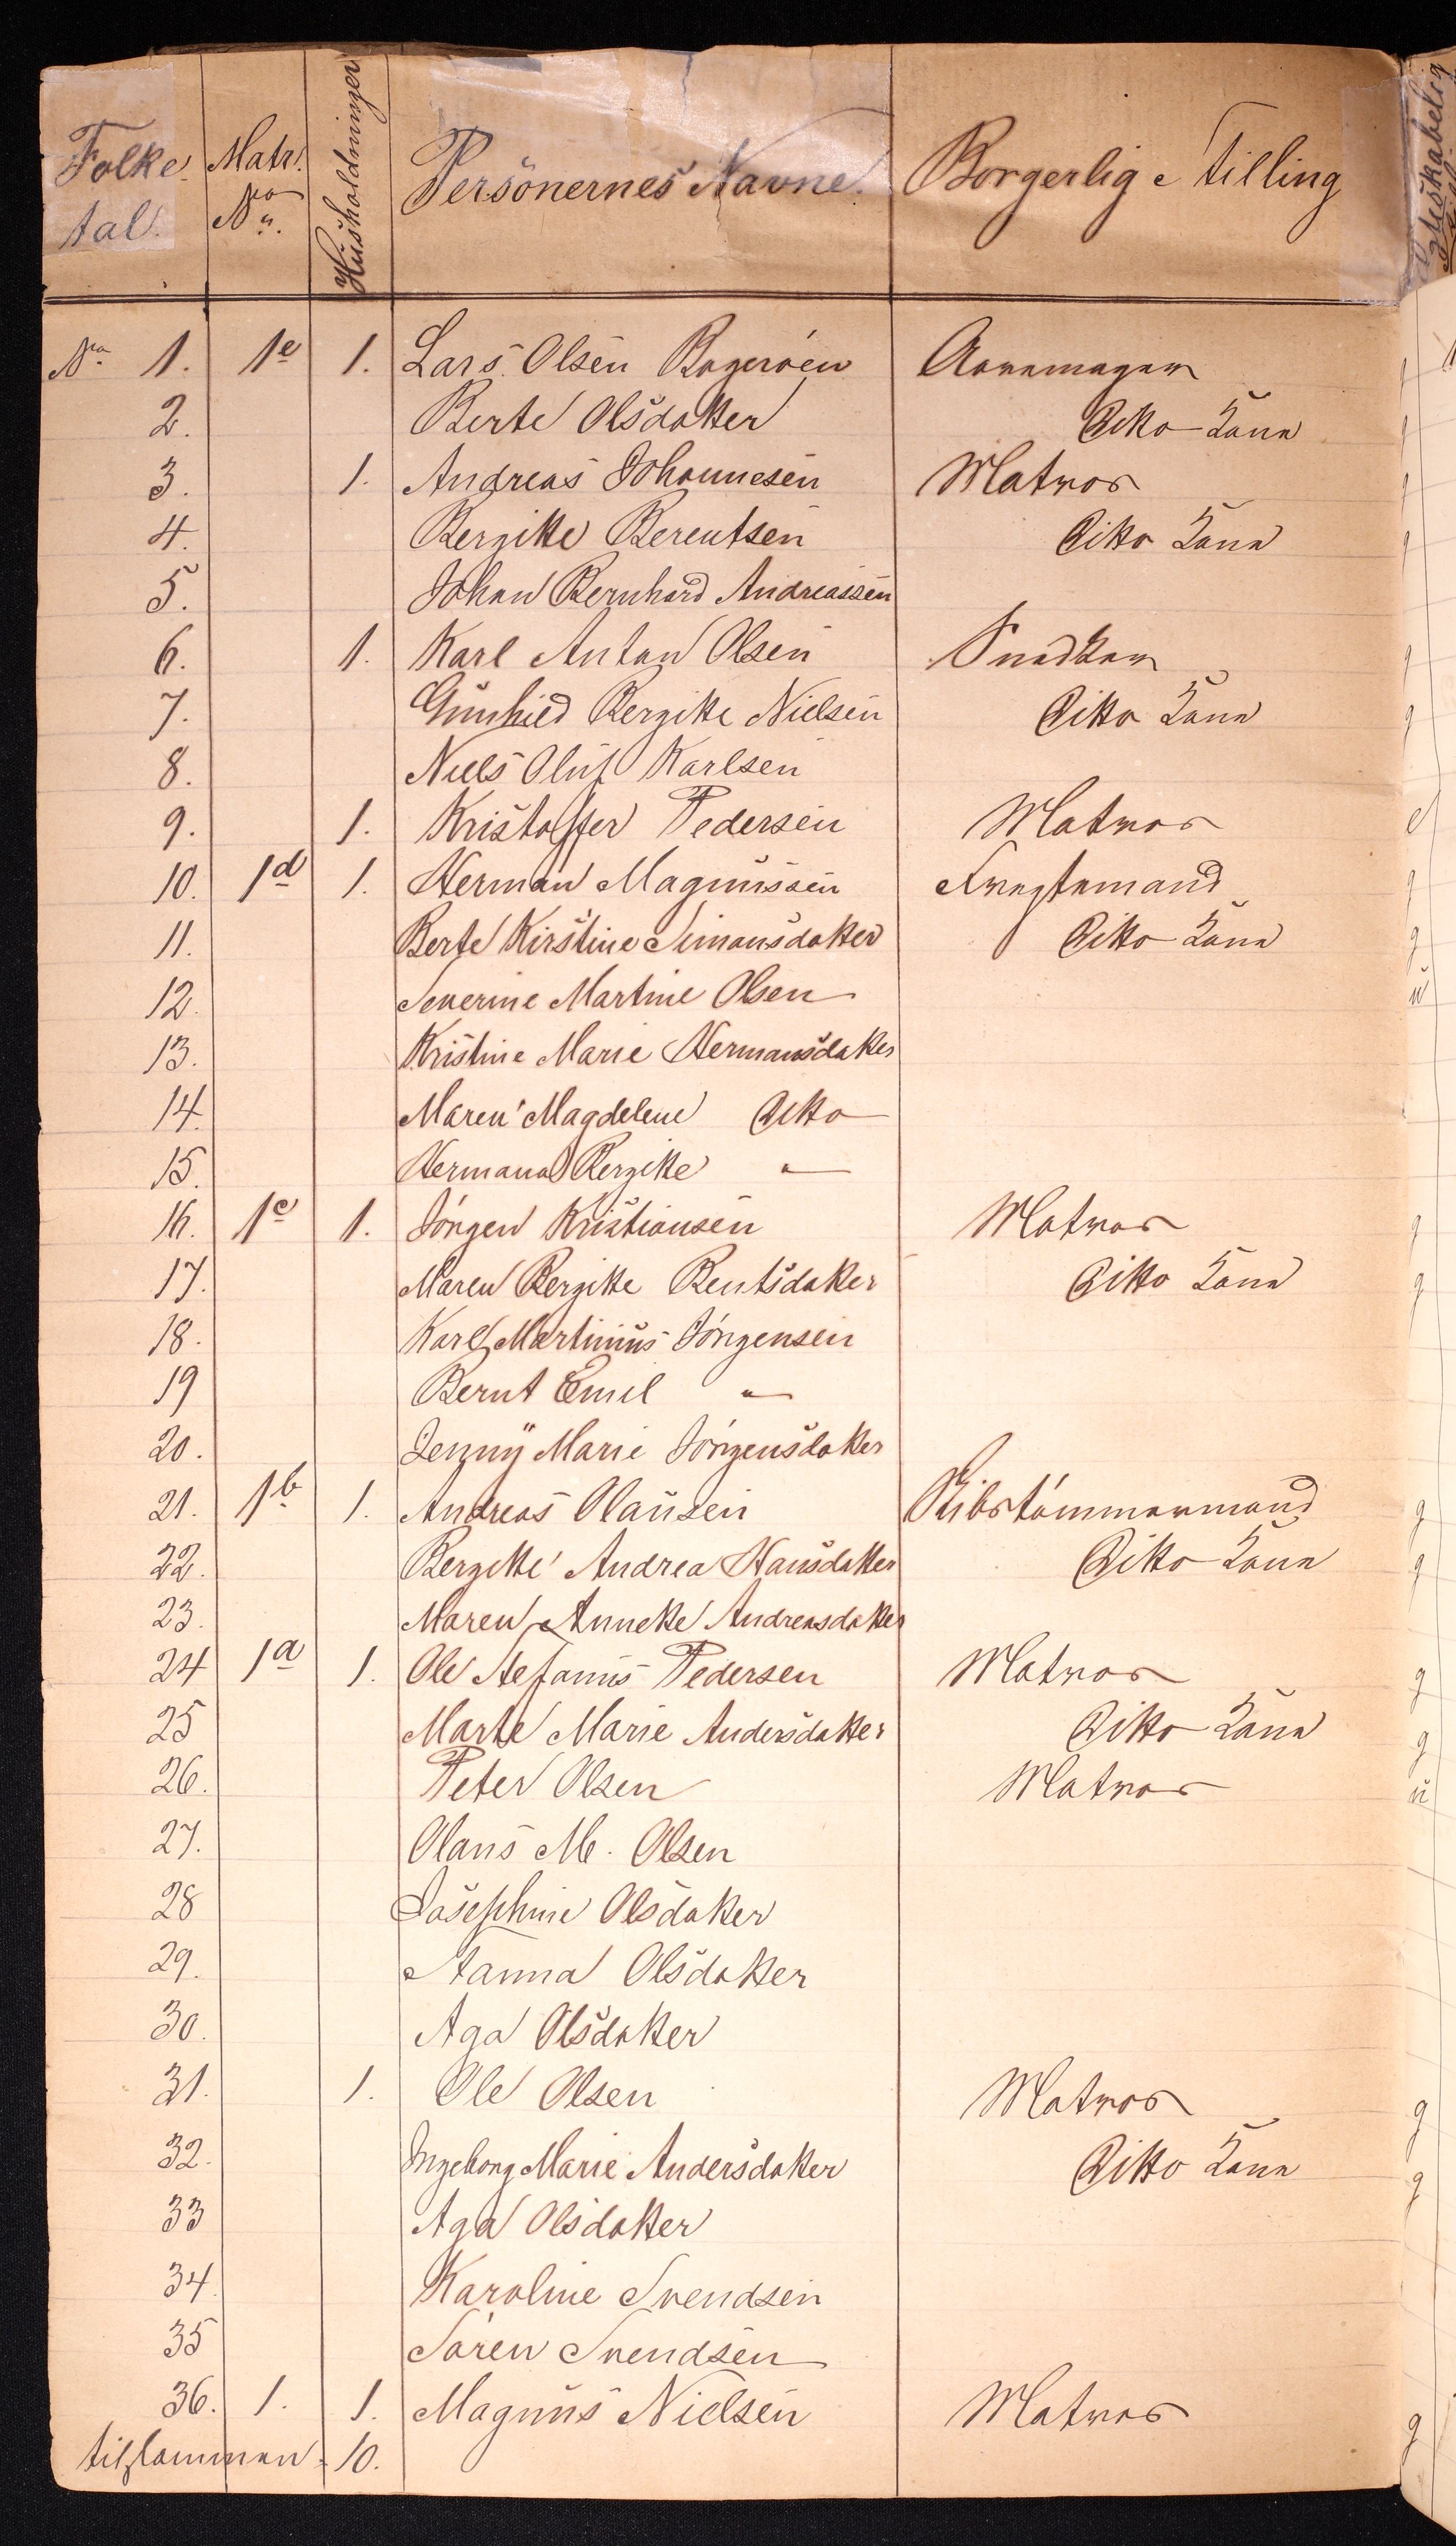 Folke Matr. Husholdninger Personernes Navne. Borgerlig Stilling
tal. No.
No 1. 1e 1. Lars Olsen Bogerøen
2. Berte Olsdatter Ditto Kone
3. 1. Andreas Johannesen Matros
4. Bergitte Berentsen Ditto Kone
5. Johan Bernhard Andreassen
6. 1. Karl Anton Olsen Snedker
7. Gunhild Bergitte Nielsen Ditto Kone
8. Niels Oluf Karlsen
9. 1. Kristoffer Pedersen Matros
10. 1d 1. Herman Magnussen Fragtemand
11. Berte Kirstine Simonsdatter Ditto Kone
12. Severine Martine Olsen
13. Kristine Marie Hermansdatter
14. Maren Magdelene Ditto
15. Hermana Bergitte "
16. 1c 1. Jörgen Kristiansen Matros
17. Maren Bergitte Bentsdatter Ditto Kone
18. Karl Martinius Jörgensen
19 Bernt Emil "
20. Jenny Marie Jörgensdatter
21. 1b 1. Andreas Olausen Skibstömmermand
22. Bergitte Andrea Hansdatter Ditto Kone
23. Maren Annette Andreasdatter
24 1a 1. Ole Stefanus Pedersen Matros
25 Marte Marie Andersdatter Ditto Kone
26. Peter Olsen Matros
27. Olaus M. Olsen
28 Josephine Olsdatter
29. Hanna Olsdatter
30. Aga Olsdatter
31. 1. Ole Olsen Matros
32. Ingeborg Marie Andersdatter Ditto Kone
33 Aga Olsdatter
34. Karoline Svendsen
35 Sören Svendsen
36. 1. 1. Magnus Nielsen Matros
tilsammen 10.